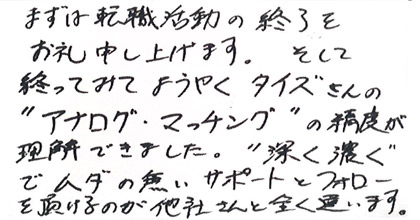 まずは転職活動の終了を
お礼申し上げます。 そして
終ってみてようやく タイズさんの
"アナログ・マッチング"の精度が
理解できました。"深く濃く"
でムダの無いサポートとフォロー
を頂けるのが他社さんと全く違います。